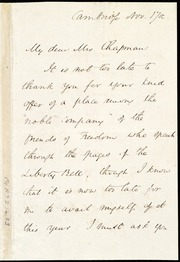 Cambridge Nov. 17th
My dear Mrs Chapman
It is not too late to
thank you for your kind
offer of a place among the
"noble company" of the
friends of Freedom who speak
through the pages of the
Liberty Bell, though I know
that it is now too late for
me to avail myself of it
this year. I must ask you